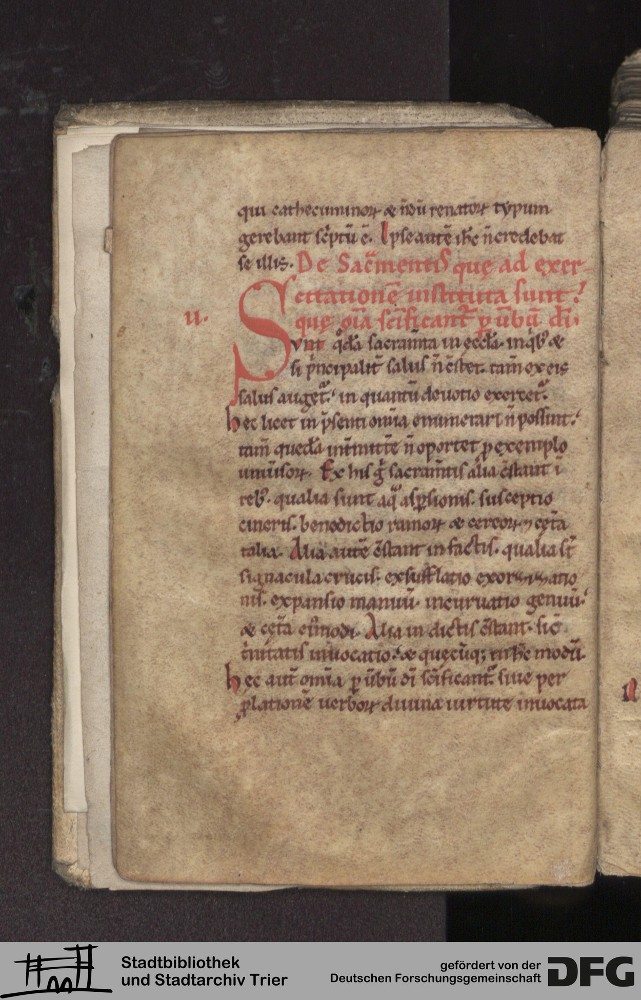 qui cathecuminoꝝ & n̄dū renatoꝝ typum
gerebant sc̄ptū ē. Ipse autē ih̄c n̄ credebat
se illis. De Sac̄mentis que ad exer-
citationē instituta sunt.
u. quę oīa sc̄ificant᷑ ꝑ ūbū dī.
Sunt qđā sacram̄ta in eccl̄a. in qb; &
si p̄ncipalit̄ salus n̄ ɔ̄stet. tam̄ ex eis
salus auget᷑. in quantū deuotio exercet᷑.
hec licet in p̄senti omnia enumerari n̄ possint.
tam̄ quedā int̄mitt̄e n̄ oportet ꝑ exemplo
uniūsoꝝ. Ex his ḡ sacram̄tis alia ɔ̄stant ī
reb;. qualia sunt aq̄ asꝑsionis. susceptio
cineris. benedictio ramoꝝ & cereoꝝ. & cęt̄a
talia. Alia autē ɔ̄stant in factis. qualia st̄
signacula crucis. exsufflatio
nis. expansio manuū. incuruatio genuū.
& cęt̄a ei᷒modi. Alia in dictis ɔ̄stant. sic̄
t̄nitatis inuocatio. & quęcūq; in hc̄ modū.
hec aut̄ omnia ꝑ ūbū dī sc̄ificant᷑. siue per
ꝓlationē uerboꝝ diuina uirtute inuocata
Stadtbibliothek
und Stadtarchiv Trier
gefördert von der
Deutschen Forschungsgemeinschaft
DFG